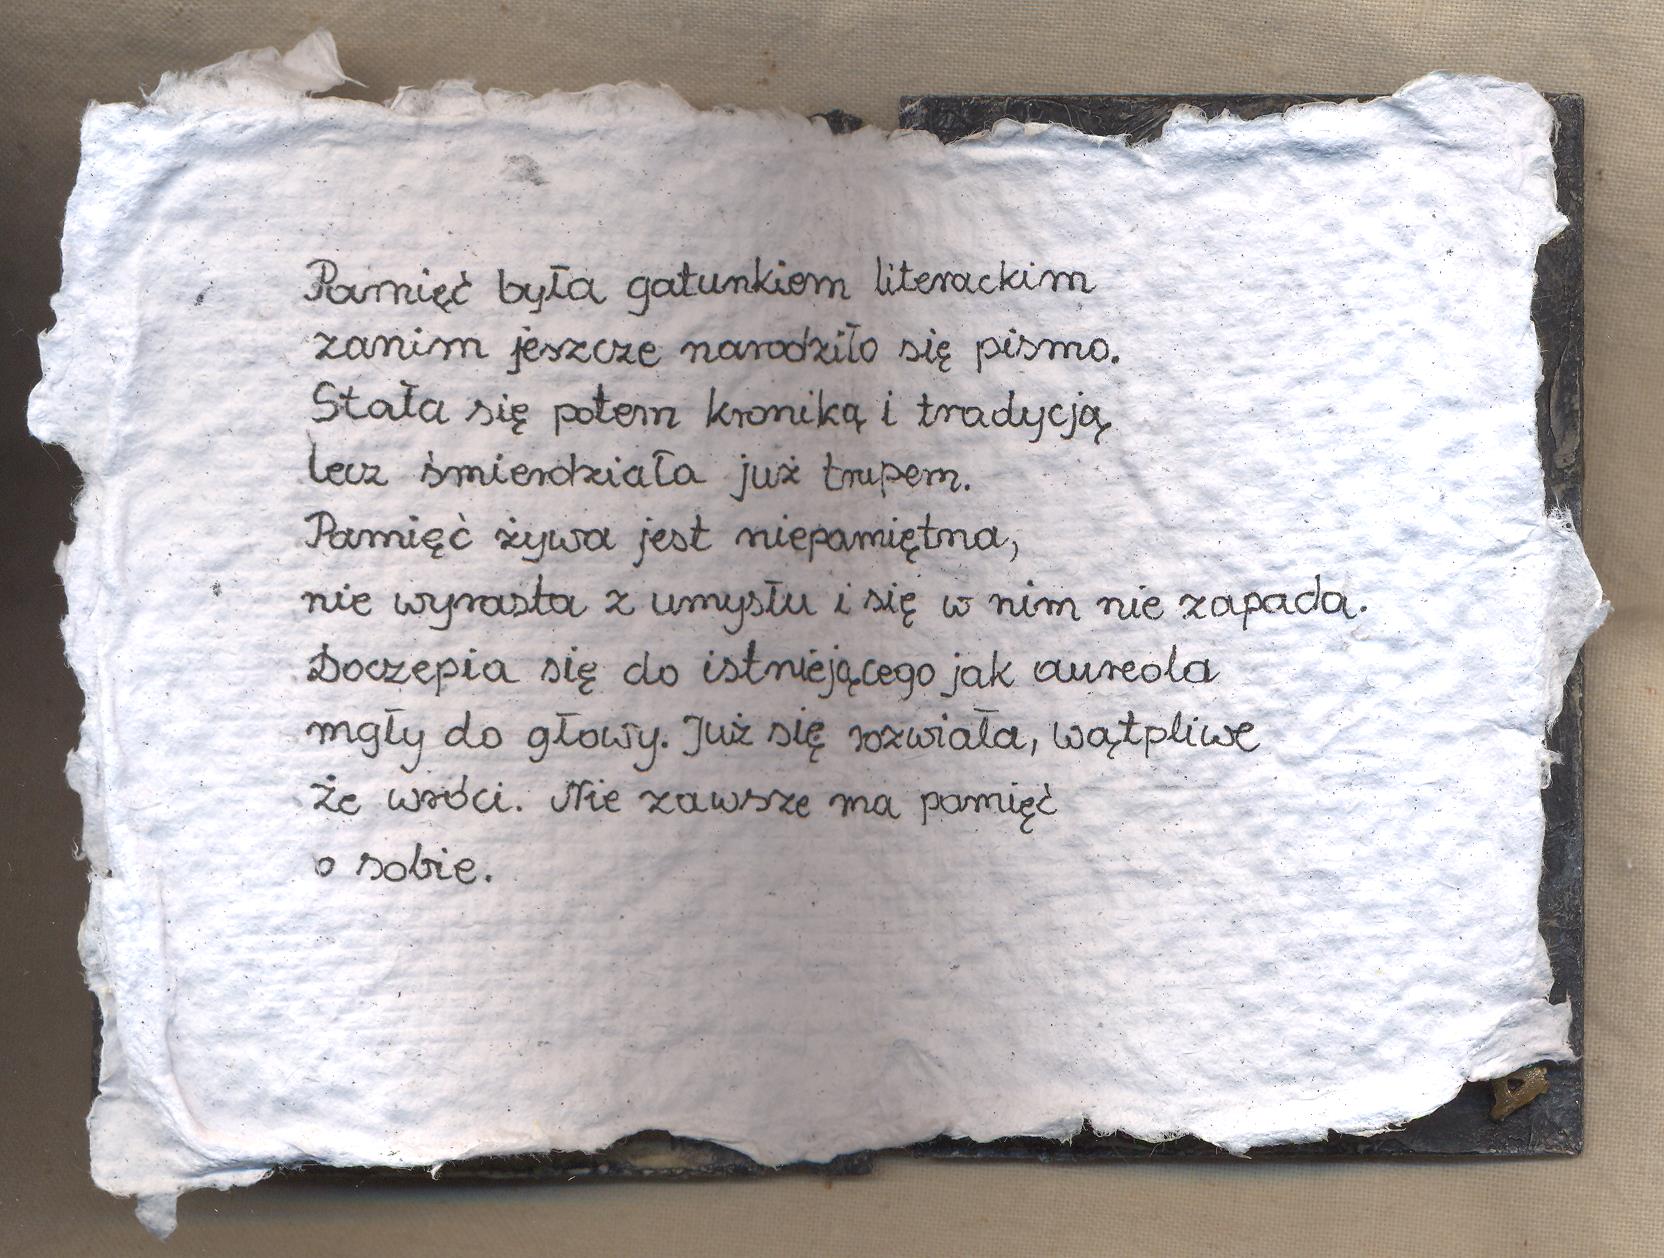 Pamięć była gatunkiem literackim
zanim jeszcze narodziło się pismo.
Stała się potem kroniką i tradycją,
lecz śmierdziała już trupem.
Pamięć żywa jest niepamiętna,
nie wyrasta z umysłu i się w nim nie zapada.
Doczepia się do istniejącego jak aureola
mgły do głowy. Już się rozwiała, wątpliwe
że wróci. Nie zawsze ma pamięć
o sobie.